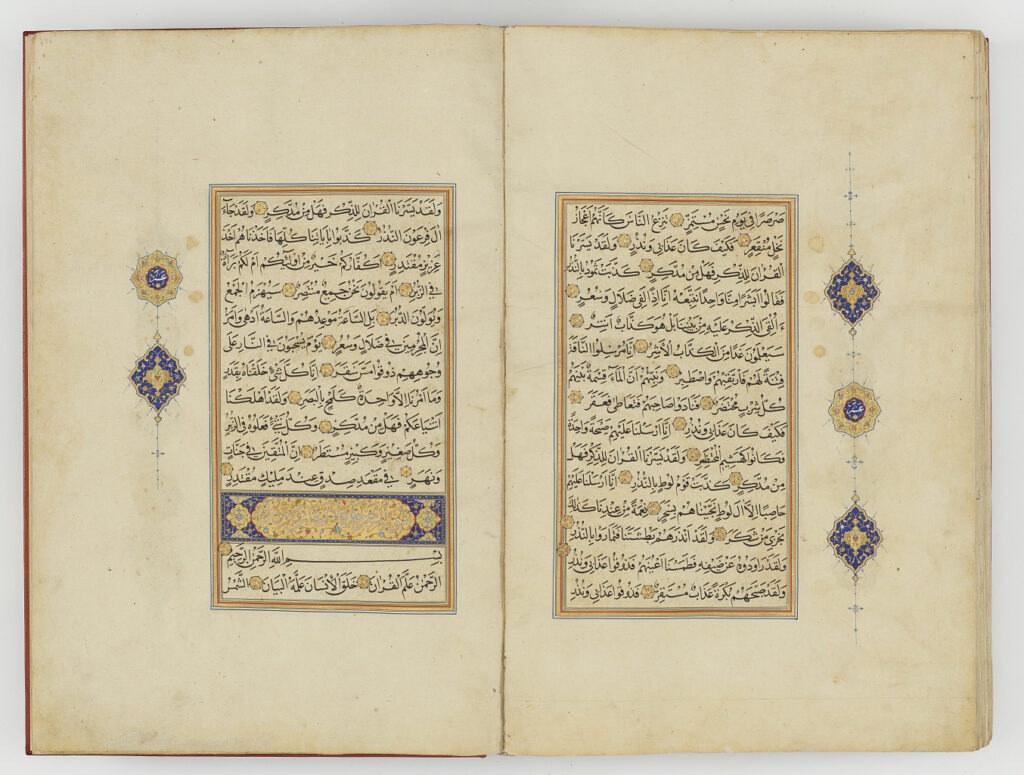 صرصرا في يوم نحس مستمر تنزع الناس كانهم اعجاز
نخل منقعر فكيف كان عذابي ونذر ولقد يسرنا
القران للذكر فهل من مدكر كذبت ثمود بالنذر
فقالوا ابشرا منا واحدا نتبعه انا اذا لفي ضلال وسعر
ءالقي الذكر عليه من بيننا بل هو كذاب اشر
سيعلمون غدا من الكذاب الاشر انا مرسلوا الناقة
فتنة لهم فارتقبهم واصطبر ونبئهم ان الماء قسمة بينهم
كل شرب محتضر فنادوا صاحبهم فتعاطى فعقر
فكيف كان عذابي ونذر انا ارسلنا عليهم صيحة واحدة
فكانوا كهشيم المحتظر ولقد يسرنا القران للذكر فهل
من مدكر كذبت قوم لوط بالنذر انا ارسلنا عليهم
حاصبا الا ال لوط نجيناهم بسحر نعمة من عندنا كذلك
نجزي من شكر ولقد انذرهم بطشتنا فتماروا بالنذر
ولقد راودوه عن ضيفه فطمسنا اعينهم فذوقوا عذابي ونذر
ولقد صبحهم بكرة عذاب مستقر فذوقوا عذابي ونذر
عشر
ولقد يسرنا القران للذكر فهل من مدكر ولقد جاء
ال فرعون النذر كذبوا باياتنا كلها فاخذناهم اخذ
عزيز مقتدر اكفاركم خير من اولئكم ام لكم براءة
في الزبر ام يقولون نحن جميع منتصر سيهزم الجمع
ويولون الدبر بل الساعة موعدهم والساعة ادهى وامر
ان المجرمين في ضلال وسعر يوم يسحبون في النار على
وجوههم ذوقوا مس سقر انا كل شئ خلقناه بقدر
وما امرنا الا واحدة كلمح بالبصر ولقد اهلكنا
اشياعكم فهل من مدكر وكل شئ فعلوه في الزبر
وكل صغير وكبير مستطر ان المتقين في جنات
ونهر في مقعد صدق عند مليك مقتدر
بسم الله الرحمن الرحيم
الرحمن علم القران خلق الانسان علمه البيان الشمس
عشر